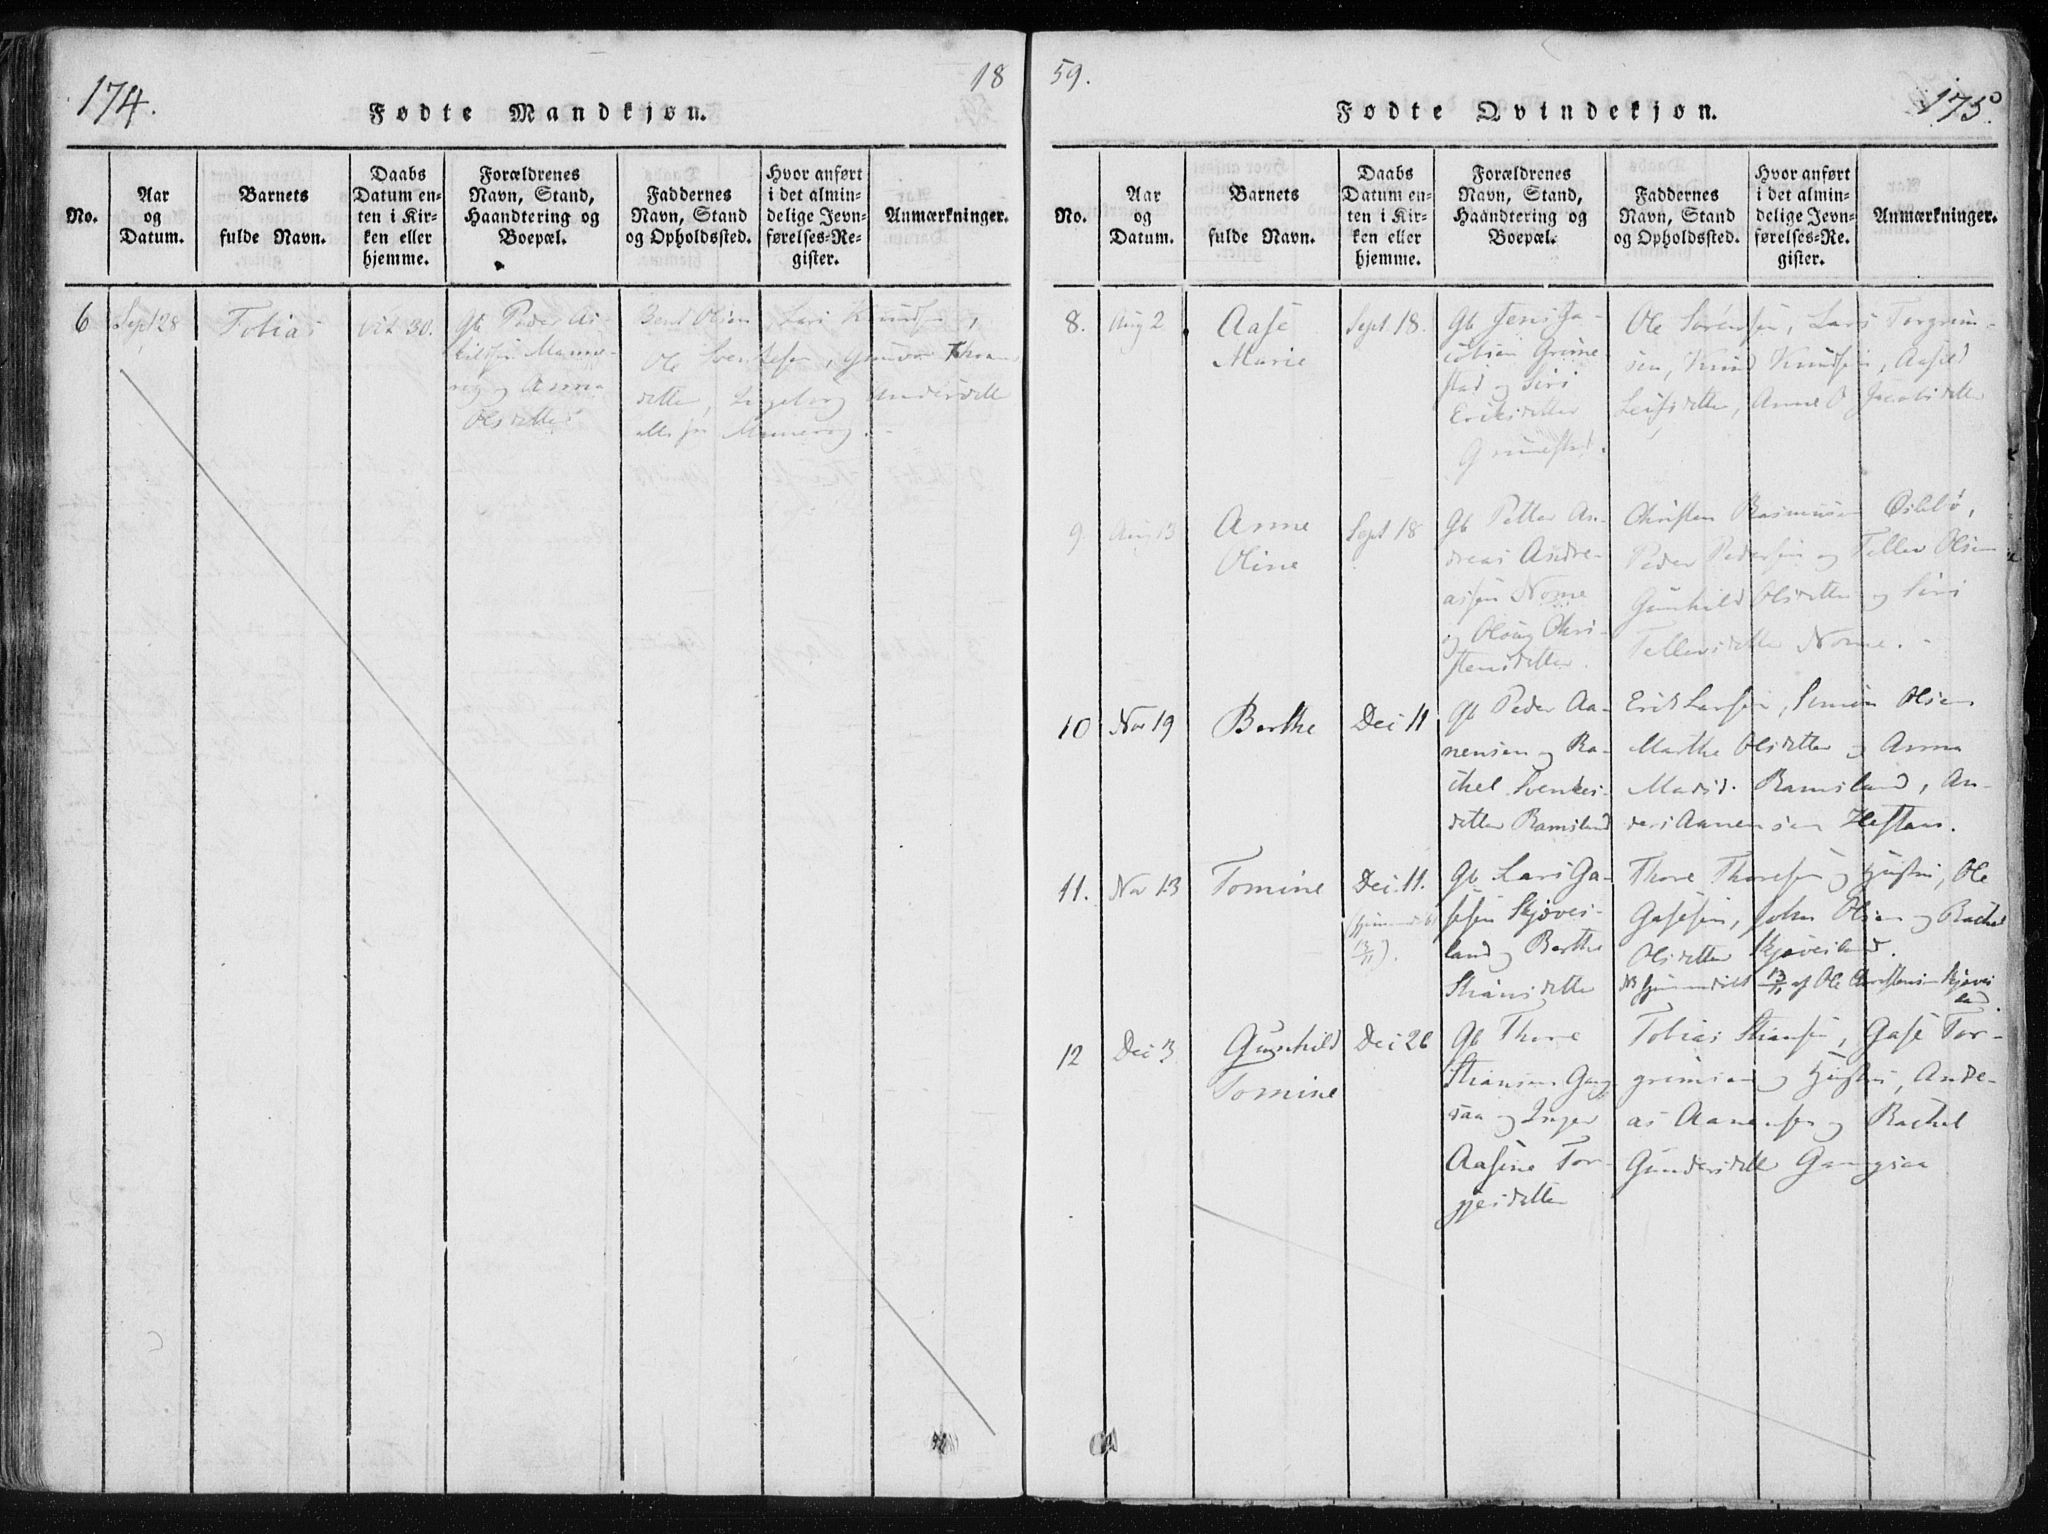 174.
18
Fødte Mandkjøn.
No.
Aar
og
Datum.
Barnets
fulde Navn.
Daabs
Datum en-
ten i Kir-
ken eller
hjemme.
Forældrenes
Navn, Stand,
Haandtering og
Boepæl.
Faddernes
Navn, Stand
og Opholdssted.
Hvor anført
i det almin-
delige Jevn-
førelses-Re-
gister.
Anmærkninger.
6
Sept 28
Tobias
Oct 30.
Gb Peder As-
og Anna
Olsdatter
Bent Olsen, Lars Knudsen,
Ole
datter, Ingeborg Andersdatter
alle fra
59.
175
Fødte Qvindekjøn.
No.
Aar
og
Datum.
Barnets
fulde Navn.
Daabs
Datum en-
ten i Kir-
ken eller
hjemme.
Forældrenes
Navn, Stand,
Haandtering og
Boepæl.
Faddernes
Navn, Stand
og Opholdssted.
Hvor anført
i det almin-
delige Jevn-
førelses-Re-
gister.
Anmærkninger.
8.
Aug 2
Aase
Marie
Sept 18.
Gb Jens Ja-
cobsen Grime
stad og Siri
Eriksdatter
Grimestad.
Ole Sørensen, Lars Torgrim-
sen, Knud Knudsen, Aasel
Leifsdatter, Anne O Jacobsdatter
9.
Aug 13
Anne
Oline
Sept 18
Gb Petter An-
dreas Andre-
assen Nome
og Oloug Chri-
stensdatter.
Christen Rasmusen Øslebø,
Peder Pedersen og Tellev Olsen
Gunhild Olsdatter og Siri
Tellevsdatter Nome.
10
Nov 19
Berthe
Dec 11
Gb Peder Aa-
nensen og Ra-
chel Svenkes-
datter Ramsland
Erik Larsen, Simon Olsen
Marthe Olsdatter og Anna
Madsd. Ramsland, An-
ders Aanensen Heftan.
11.
Nov 13
Tomine
Dec 11.
13/11).
Gb Lars Ga-
sesen Skjøves-
land og Berthe
Stiansdatter
Thore Thoresen og Hustru, Ole
Gasesen, John Olsen og Rachel
Olsdatter Skjøvesland.
NB hjemmedøbt 13/11 af Ole Christensen Skjøves
land
12
Dec 3
Gunhild
Tomine
Dec 26
Gb Thore
Stiansen Gang
saa og Inger
Aasine Tor-
gjesdatter
Tobias Stiansen, Gase Tor-
grimsen og Hustru, Andre-
as Aanensen og Rachel
Gundersdatter Gangsaa